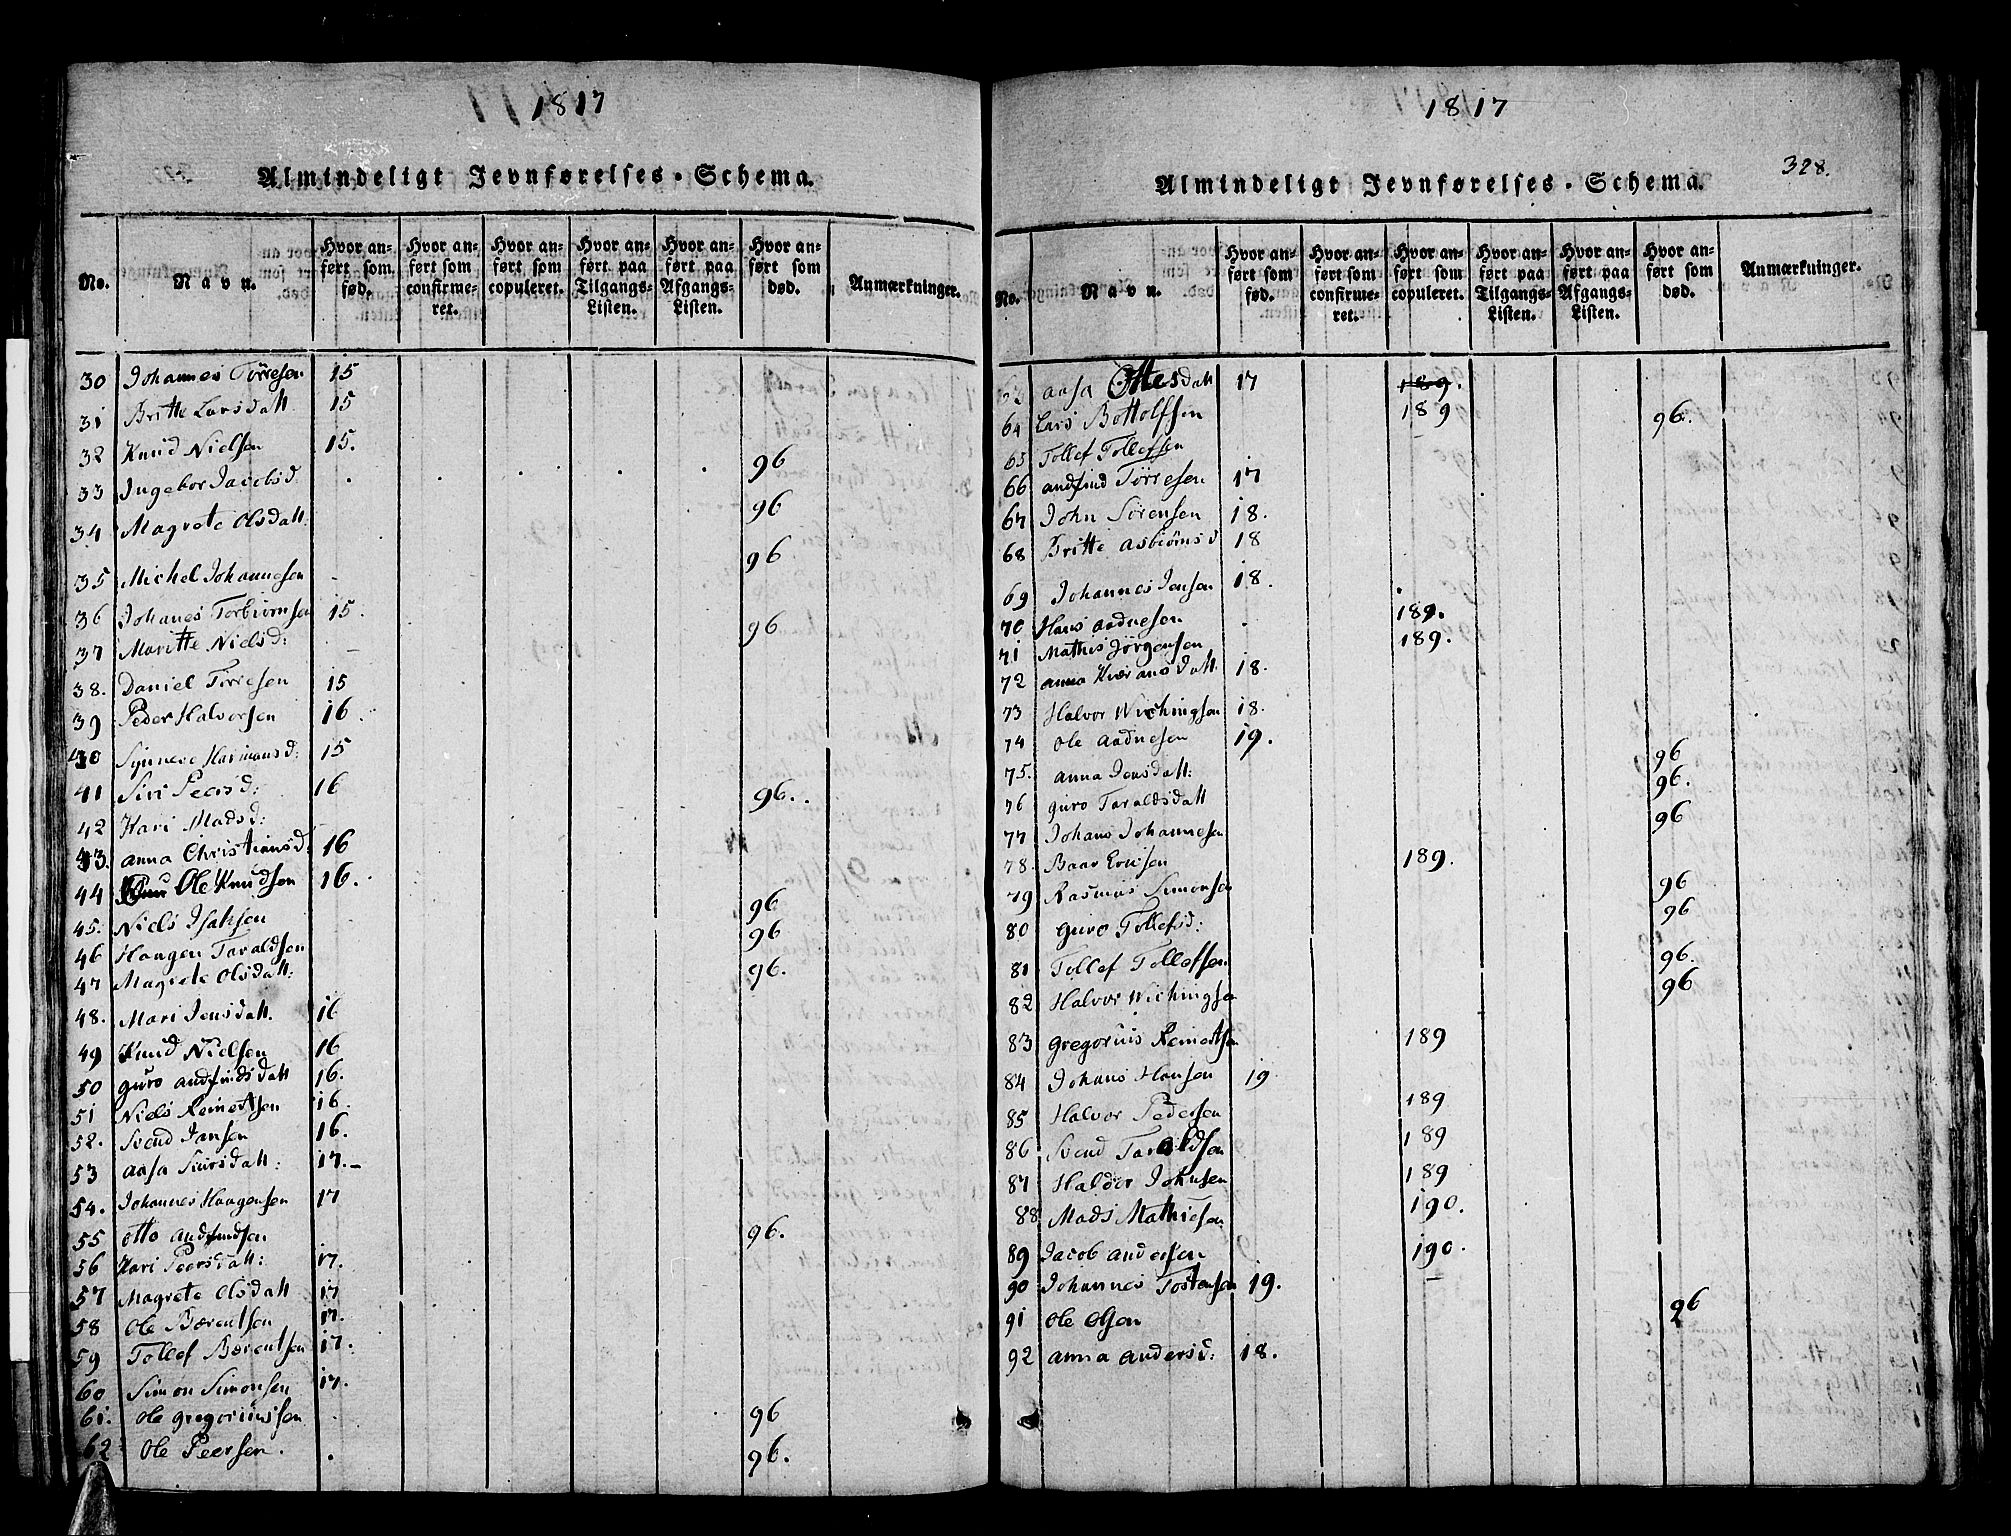 1817
Almindeligt Jevnførelses-Schema.
No. Navn. Hvor anført som fød. Hvor anført som confirmeret. Hvor anført som copuleret. Hvor anført paa Tilgangs-Listen. Hvor anført paa Afgangs-Listen. Hvor anført som død. Anmærkninger.
30 Johannes Törresen 15
31 Britte Larsdatt 15
32 Knud Nielsen 15.
33 Ingebor Jacobsd 96
34 Magrete Olsdatt 96
35 Michel Johannesen 96
36 Johanes Torbiörnsen 15.
37 Maritte Nielsd: 96
38. Daniel Törresen 15
39 Peder Halvorsen 16.
40 Synneve Harmansd: 15
41 Siri Peersd: 16
42 Kari Madsd: 96.
43. Anna Christiansd: 16
44 Ole Knudsen 16.
45. Niels Isaksen 96
46 Haagen Taraldsen 96
47 Magrete Olsdatt: 96.
48. Mari Jensdatt. 16
49 Knud Nielsen 16
50 Guro Andfindsdatt 16.
51 Niels Reinertsen 16.
52. Svend Jansen 16.
53 Aasa Siursdatt: 17.
54. Johannes Haagensen 17
55 Otto Andfindsen 96.
56 Kari Peersdatt: 17.
57 Magrete Olsdatt 17
58 Ole Bærentsen 17.
59 Tollef Bærentsen 17.
60 Simon Simonsen 17.
61. Ole Gregoriussen 96
62 Ole Peersen. 96.
1817
328.
Almindeligt Jevnførelses-Schema.
No. Navn. Hvor anført som fød. Hvor anført som confirmeret. Hvor anført som copuleret. Hvor anført paa Tilgangs-Listen. Hvor anført paa Afgangs-Listen. Hvor anført som død. Anmærkninger.
Aasa Ottesdatt 17 189.
64 Lars Bottolfsen 189
65 Tollef Tollefsen 96.
66 Andfind Törresen 17
67 John Sörensen 18.
68 Britte Asbiörnsd 18
69 Johannes Jensen 18.
70 Hans Aadnesen 189.
71 Mathis Jörgensen 189.
72 Anna datt. 18.
73 Halvor Wichingsen 18.
74 Ole Aadnesen 19.
75. Anna Jensdatt: 96
76 Guro Taraldsdatt 96.
77 Johans Johannesen 96
78. Baar 189.
79 Rasmus Simonsen 96
80 Guro Tollefsd: 96
81 Tollef Tollefsen 96.
82 Halvor Wichingsen 96
83 Gregorius Reinertsen 189
84 Johans Hansen 19
85 Halvor Pedersen 189
86 Svend Taraldsen 189
87 Haldor Johnsen 189
88 Mads Mathiesen 190.
89 Jacob Andersen 190.
90 Johannes Tostensen 19.
91 Ole Olsen 96
92 Anna Andersd: 18.